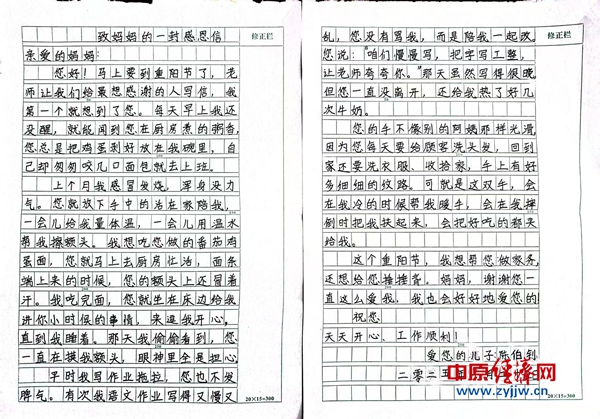 致妈妈的一封感恩信
修正栏
亲爱的妈妈:
您好!马上要到重阳节了,老
师让我们给最想感谢的人写信,我
第一个就想到了您。每天早上我还
没醒,就能闻到您在厨房煮的粥香,
您总是把鸡蛋剥好放在我碗里,自
己却匆匆咬几口面包就去上班。
上个月我感冒发烧,浑身没力
气。您就放下手中的活在家陪我,
一会儿给我量体温,一会儿用温水
帮我擦额头。我想吃您做的番茄鸡
蛋面,您就马上去厨房忙活,面条
端上来的时候,您的额头上还冒着
汗。我吃完面,您就坐在床边给我
讲你小时候的事情,来逗我开心,
直到我睡着。那天我偷偷看到,您
一直在摸我额头,眼神里全是担心。
平时我写作业拖拉,您也不发
脾气。有次我语文作业写得又慢又
20×15=300
修正栏
乱,您没有骂我,而是陪我一起改。
您说:“咱们慢慢写,把字写工整,
让老师夸夸你。”那天虽然写得很晚,
但您一直没离开,还给我热了好几
次牛奶。
您的手不像别的阿姨那样光滑,
因为您每天要给顾客洗头发,回到
家还要洗衣服、收拾家,手上有好
多细细的纹路。可就是这双手,会
在我冷的时候帮我暖手,会在我摔
倒时把我扶起来,会把好吃的都夹
给我。
这个重阳节,我想帮您做家务,
还想给您捶捶背。妈妈,谢谢您一
直这么爱我,我也会好好地爱您的!
祝您
天天开心、工作顺利!
爱您的儿子:陈伯钊
二零二五
20×15=300
中原经济网
www.zyjjw.cn